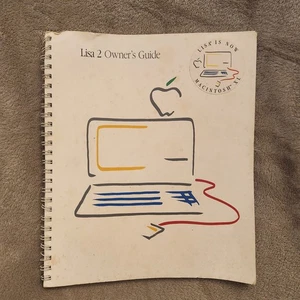 Lisa 2 Owner's Guide
LISA IS NOW
MACINTOSH XL